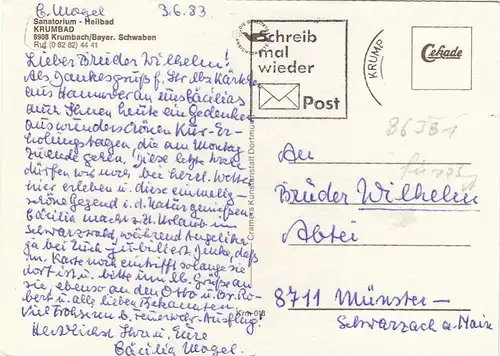 C. Mogel 3.6.83
Sanatorium - Heilbad
KRUMBAD
8908 Krumbach/Bayer. Schwaben
Ruf (0 82 82) 44 41
Lieber Bruder Wilhelm!
Als Dankesgruß f. Ihr lbs. Kärtchen
aus Hannover an uns Cäcilias
auch Ihnen heute ein Gedenken
aus wunderschönen Kur-Er-
holungstagen, die am Montag
zuende gehen. Diese letzte
dürfen wir noch bei herrl. Wetter
hier erleben u. diese einmalig
schöne Gegend i. d. Natur genießen.
Cäcilia macht z. Zt. Urlaub im
Schwarzwald, während Angelika
ja bei Euch denke, daß
m. Karte noch eintrifft solange sie
dort ist u. bitte um lb. Grüße an
sie, ebenso an den Otto u. Br. Ro-
bert u. alle lieben Bekannten.
Viel Frohsinn b. Feuerwehr-Ausflug!
Herzlichst Ihre u. Eure
Cäcilia Mogel.
Cramers Kunstanstalt Dortmund
Krm 018
Schreib
mal
wieder
Post
KRUMB
Cekade
An
Bruder Wilhelm
Abtei
8711 Münster-
Schwarzach a. Main